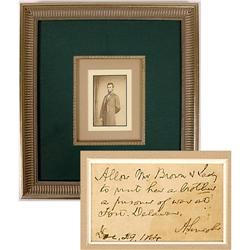 Allow Mr Brown & Lady
to visit her brother
a prisoner of war at
Fort Delaware,
A. Lincoln
Dec. 29, 1864